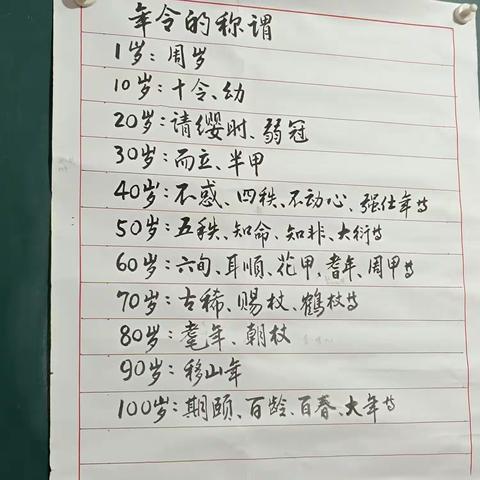 年令的称谓
1岁:周岁
10岁:十令、幼
20岁:请缨时、弱冠
30岁:而立、半甲
40岁:不惑、四秩、不动心、强仕年
50岁:五秩、知命、知非、大衍
60岁:六旬、耳顺、花甲、耆年、周甲
70岁:古稀、赐杖、鹤杖
80岁:耄年、朝杖
90岁:移山年
100岁:期颐、百龄、百春、大年